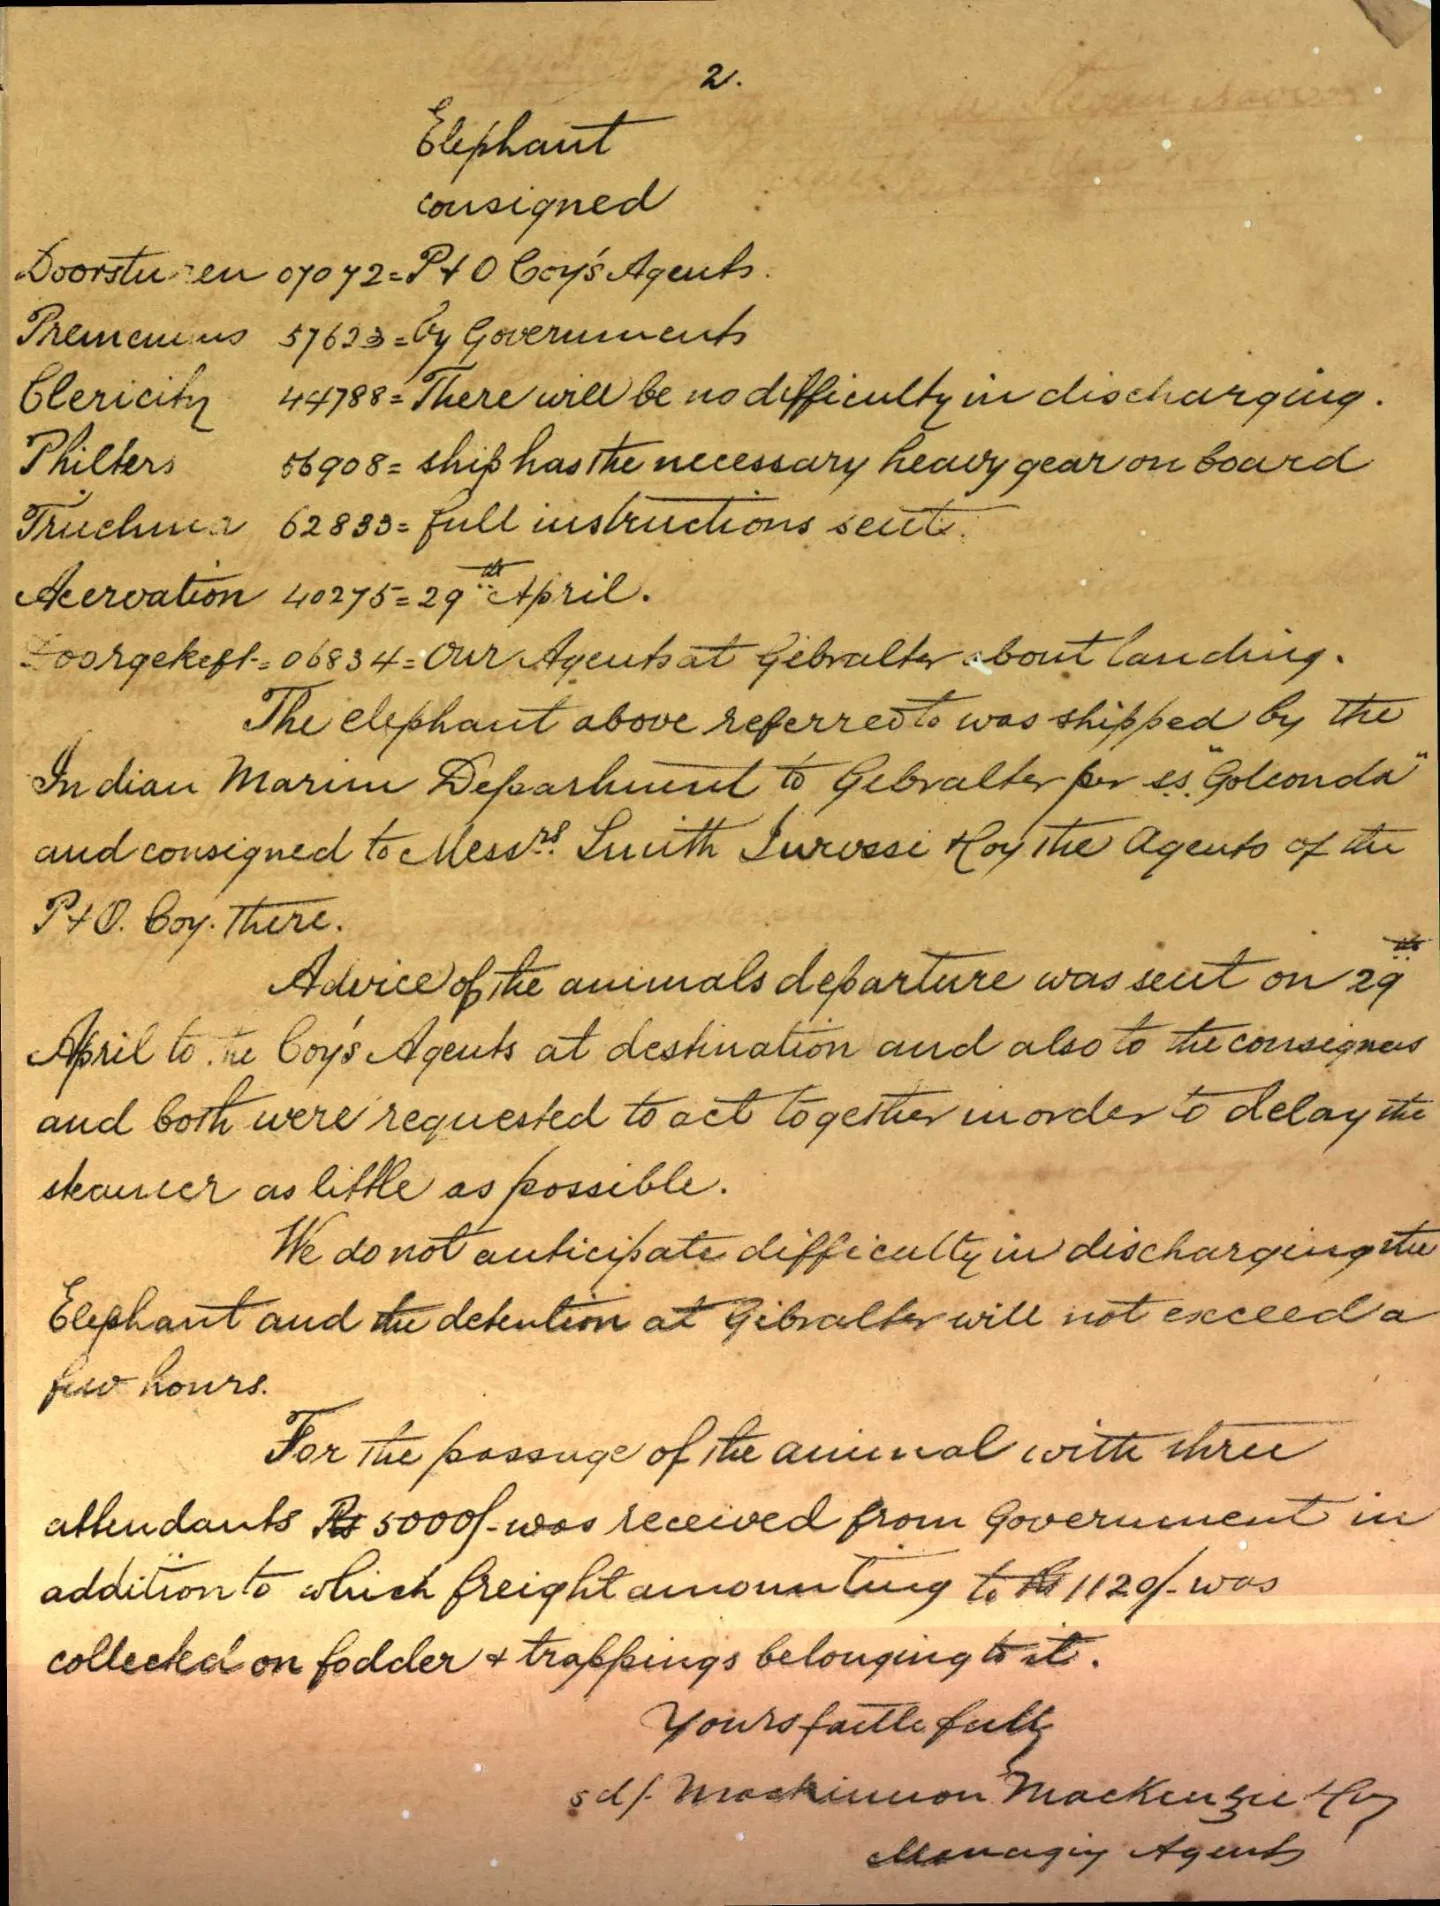 2.
Elephant
consigned
07072 = P & O Coy's Agents.
57623 = by Governments
Clericity 44788 = There will be no difficulty in discharging.
Philters 56908 = ship has the necessary heavy gear on board
62833 = full instructions sent.
Acervation 40275 = 29th April.
06834 = Our Agents at Gibralter about landing.
The elephant above referred to was shipped by the
Indian Marine Department to Gibralter per s.s. "Golconda"
and consigned to Messrs. Smith & Coy the Agents of the
P & O. Coy. there.
Advice of the animals departure was sent on 29th
April to the Coy's Agents at destination and also to the consignees
and both were requested to act together in order to delay the
steamer as little as possible.
We do not anticipate difficulty in discharging the
Elephant and the detention at Gibralter will not exceed a
few hours.
For the passage of the animal with three
attendants Rs 5000/- was received from Government in
addition to which freight amounting to Rs 1120/- was
collected on fodder & trappings belonging to it.
Yours faithfully
sd/. Mackinnon Mackenzie & Coy
Managing Agents